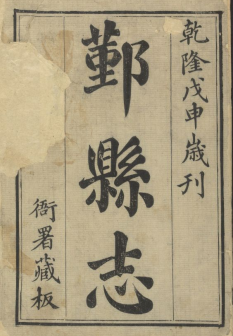 乾隆戊申歲刊
鄞縣志
衙署藏板